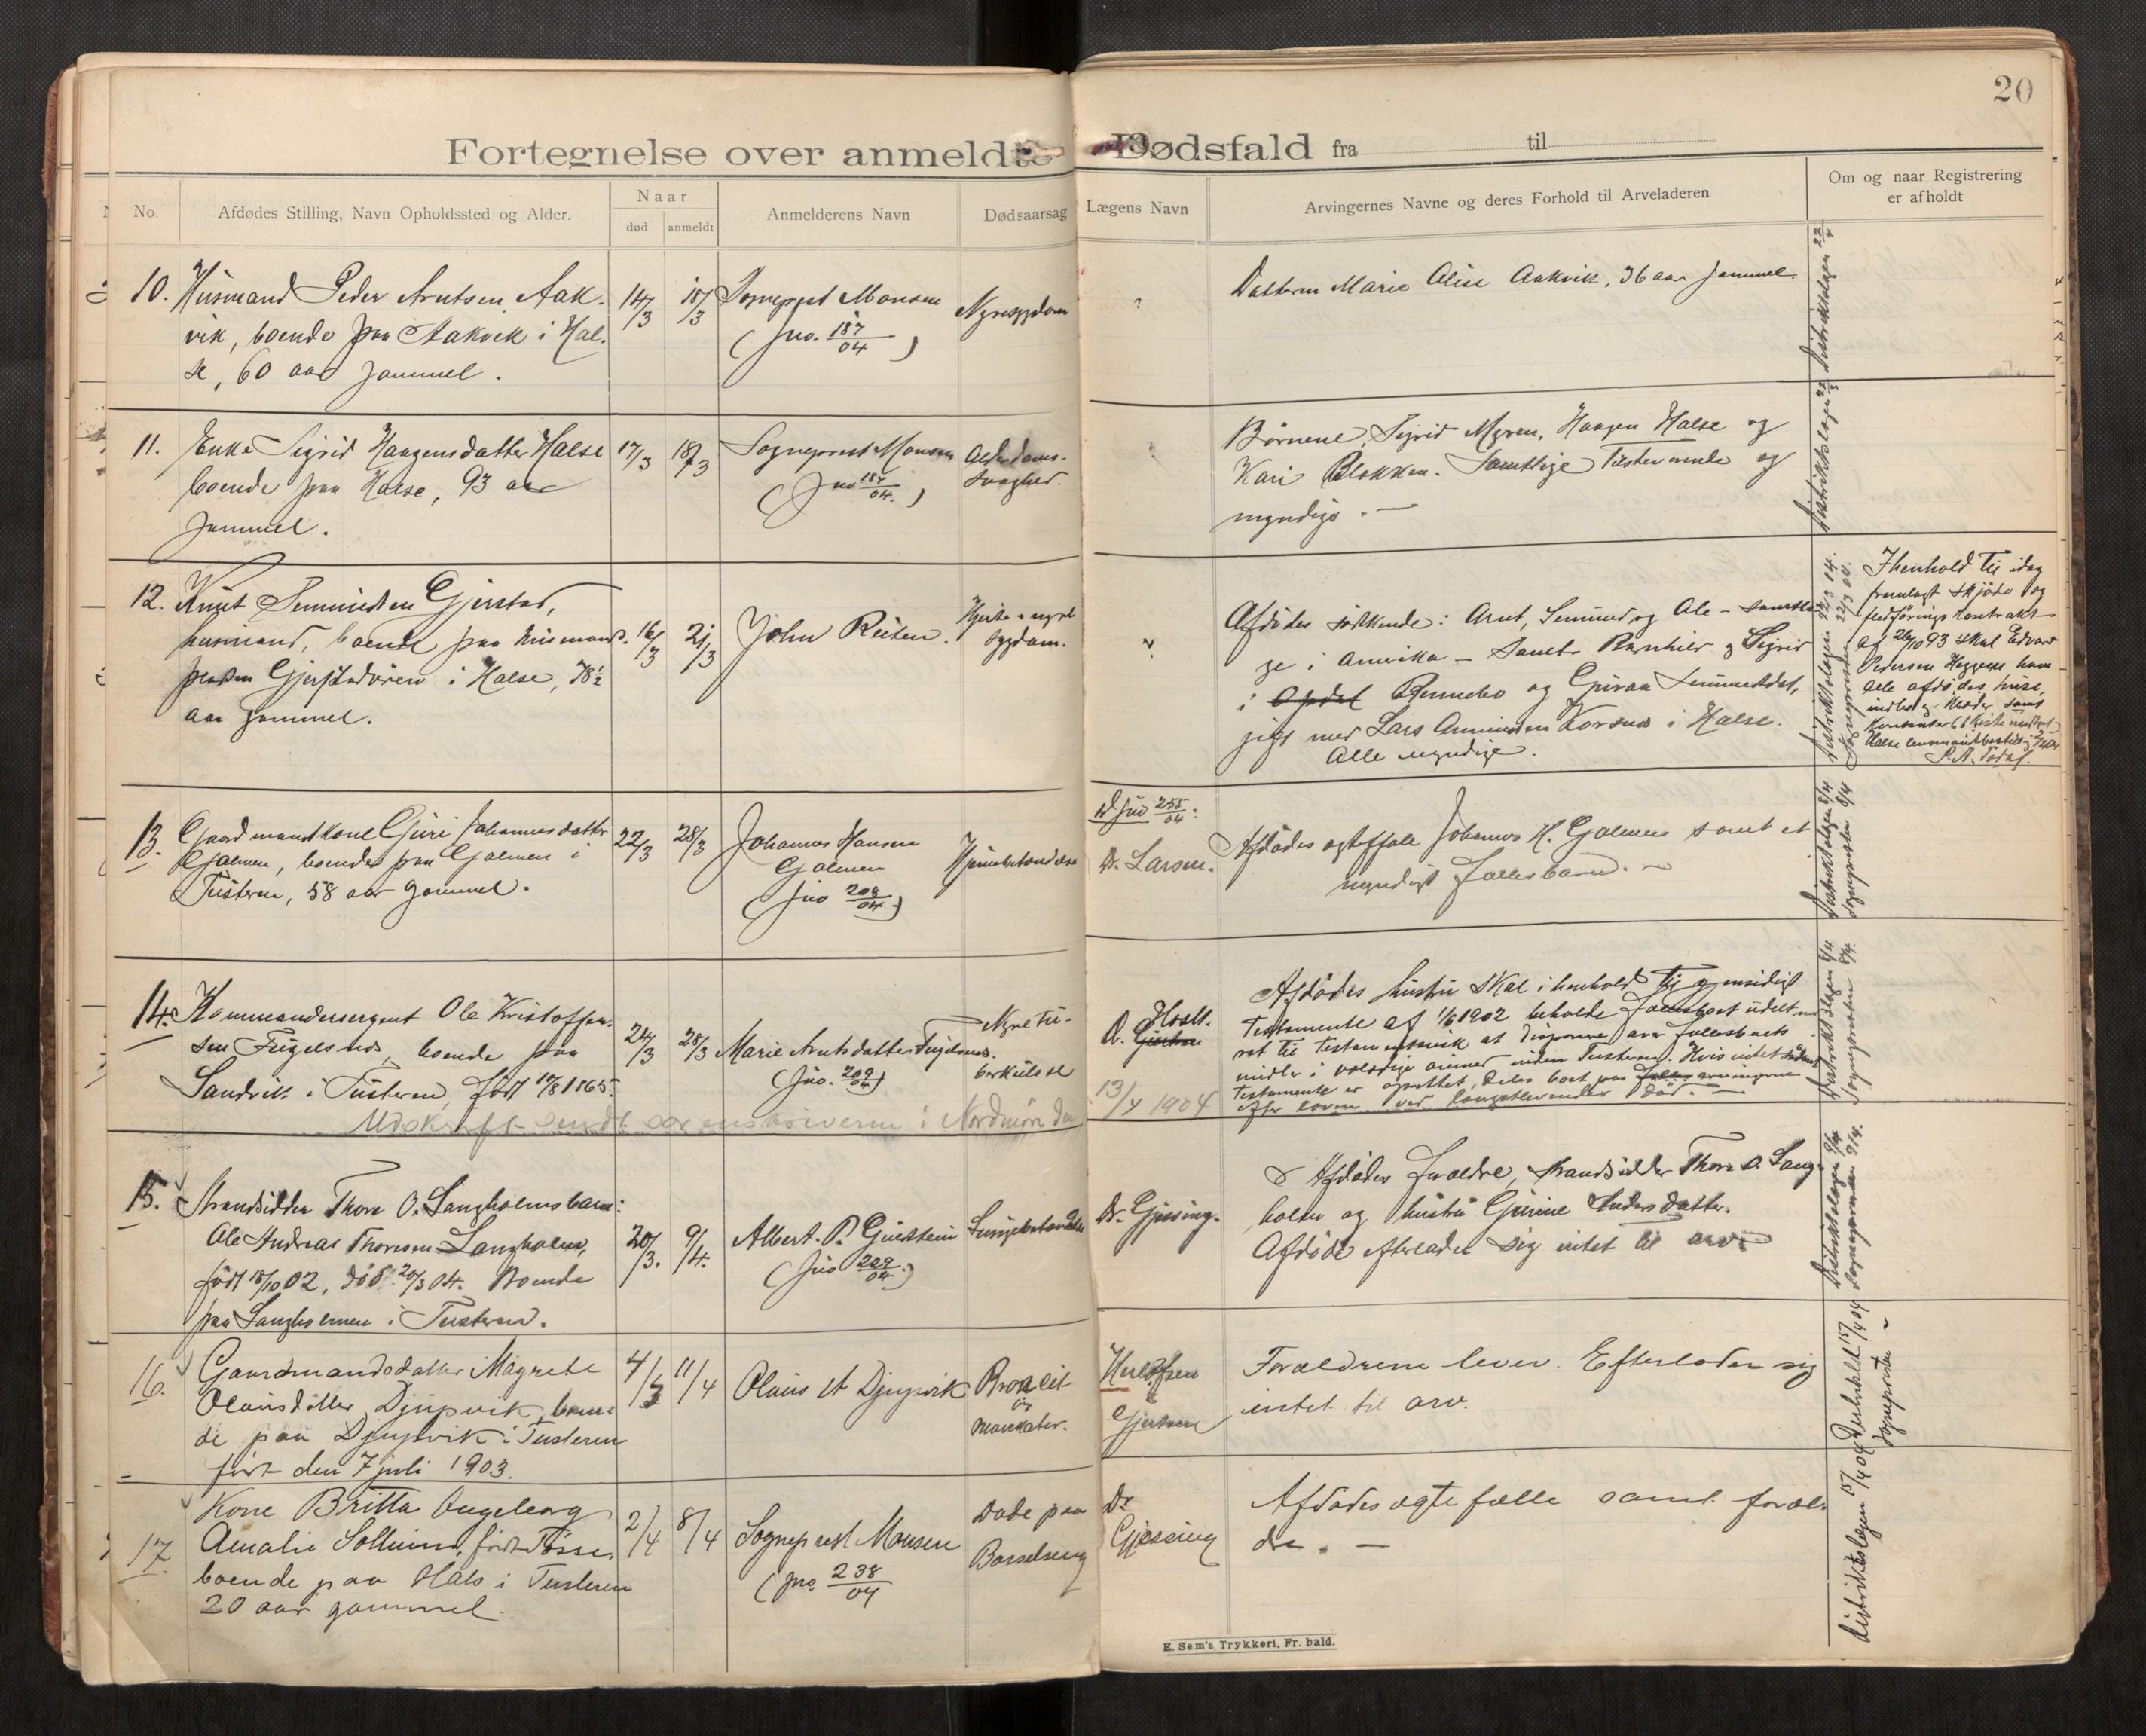 20
Fortegnelse over anmeldte Dødsfald fra til
No.
Afdødes Stilling, Navn Opholdssted og Alder.
Naar
død
anmeldt
Anmelderens Navn
Dødsaarsag
Lægens Navn
Arvingernes Navne og deres Forhold til Arveladeren
Om og naar Registrering
er afholdt
10. Husmand Peder Arntsen Aak-
vik, boende paa Aakvik i Hal-
se, 60 aar gammel.
14/3
18/3
Sogneprest Monsen
(Jno. 187/04)
Nyresygdom
?
Datteren Marie Alise Aakvik, 36 aar gammel.
Distriktslægen 22/4
11. Enke Sigrid Haagensdatter Halse
boende paa Halse, 93 aar
gammel.
17/3
18/3
Sogneprest Monsen
(Jno 187/04.)
Alderdoms-
svaghed.
Børnene, Sigrid Myren, Haagen Halse og
Kari Blekken. Samtlige tilstevende og
myndige. —
Distriktslægen 22/3
12. Knut Semundsen Gjerstad,
husmand, boende paa husmands-
pladsen Gjerstadøren i Halse, 78½
aar gammel.
16/3
21/3
John Reiten.
Hjerte & nyre
sygdom.
?
Afdødes sødskende: Arnt, Semund og Ole - samtli-
ge i Amerika - samt Ragnhild og Sigrid
i Opdal Rennebo og Guroa Semundsdat,
gift med Lars Arnundsen Korsnes i Halse.
Alle myndige.
Distriktslægen 22/3 04.
Sognepresten 22/3 04.
I henhold til idag
fremlagt skjøde og
fledføringskontrakt
af 26/10 93 skal Edvard
Pedersen Heggem have
alle afdødes huse,
indbo og klæder samt
Halse lensmandsbestilling
P. A. Todal.
13. Gaardmandskone Guri Johannesdatter
Galmen, boende paa Galmen i
Tusteren, 58 aar gammel.
22/3
28/3
Johannes Hansen
Galmen
(Jno 208/04)
Hjernebetændelse
Jno 255/04.
Dr. Larsen.
Afdødes ægtefælle Johannes H. Galmen samt et
myndigt fællesbarn. —
Distriktslægen 8/4
Sognepresten 8/4
14. Kommandersergent Ole Kristoffer-
sen Fugelsnes, boende paa
Sandvik i Tusteren, født 17/8 1865.
24/3
28/3
Marie Arntsdatter Fuglsnes.
(Jno. 209/04)
Nyretu-
berkulose
Dr. Hoell.
Gjertsen
13/4 1904
Afdødes hustru skal i henhold til gjensidigt
testamente af 1/6 1902 beholde fællesboet udelt med
ret til testamentarisk at disponere over fællesboets
midler i Tusteren. Hvis intet sådant
testamente er oprettet, deles boet paa fælles arvingerne
efter loven ved længstlevendes død. —
Distriktslægen 8/4
Sognepresten 8/4.
Udskrift sendt sorenskriveren i Nordmøre den
15. Strandsidder Thore O. Langholmens barn:
Ole Andreas Thoresen Langholmen,
født 18/10 02, død 20/3 04. Boende
paa Langholmen i Tusteren.
20/3.
9/4.
Albert P. Gulstein
(Jno 229/04)
Lungebetændelse
Dr. Gjessing.
Afdødes forældre, strandsidder Thore O. Lang-
holmen og hustru Gurine Andersdatter.
Afdøde efterlader sig intet til arv.
Distriktslægen 9/4
Sognepresten 9/4.
16. Gaardmandsdatter Magrete
Olausdatter Djupvik, boen-
de paa Djupvik i Tusteren
født den 7 juli 1903.
4/3
11/4
Olaus A Djupvik
Broncit
og
Gjertsen
Forældrene lever. Efterlader sig
intet til arv.
15/4 04
Sognepresten
17. Kone Britta Ingeborg
Amalie Solheim, født Tøsse,
boende paa Hals i Tusteren
20 aar gammel.
2/4
8/4
Sogneprest Monsen
(Jno 238/04
Døde paa
Barselseng
Dr
Gjessing
Afdødes ægtefælle samt foræl-
dre. —
Distriktslægen 15/4 04
E. Sem's Trykkeri, Fr. hald.